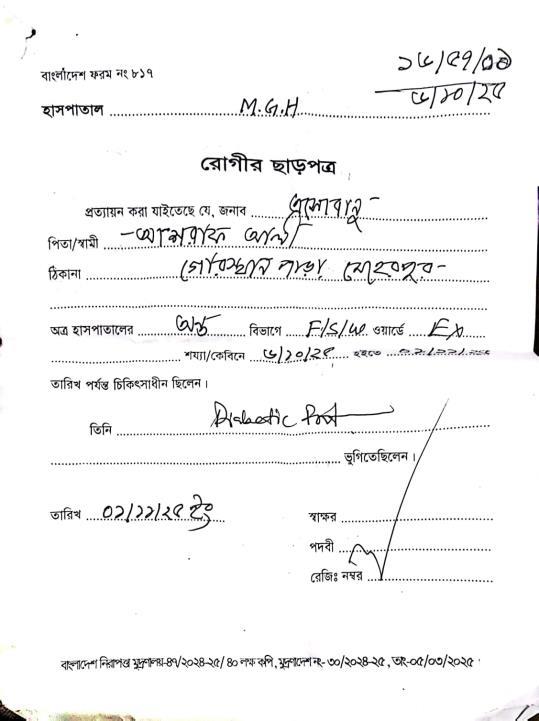 বাংলাদেশ ফরম নং ৮১৭
৬/১০/২৫
হাসপাতাল M.G.H
রোগীর ছাড়পত্র
প্রত্যায়ন করা যাইতেছে যে, জনাব
পিতা/স্বামী আশরাফ আলী
ঠিকানা গোরস্থান পাড়া মেহেরপুর
অত্র হাসপাতালের বিভাগে F/S/W ওয়ার্ডে Ex
শয্যা/কেবিনে ৬/১০/২৫ হইতে
তারিখ পর্যন্ত চিকিৎসাধীন ছিলেন।
তিনি Diabetic Foot
ভূগিতেছিলেন।
তারিখ ০২/১১/২৫ ইং
স্বাক্ষর
পদবী
রেজিঃ নম্বর
বাংলাদেশ নিরাপত্তা মুদ্রণালয়-৪৭/২০২৪-২৫/ ৪০ লক্ষ কপি, মুদ্রণাদেশ নং- ৩০/২০২৪-২৫, তাং-০৫/০৩/২০২৫